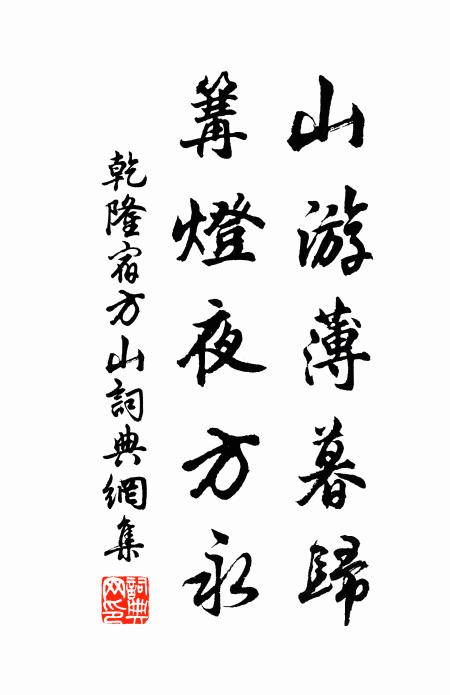 山游薄暮歸
篝燈夜方永
乾隆宿方山詞典網集
詞典網印